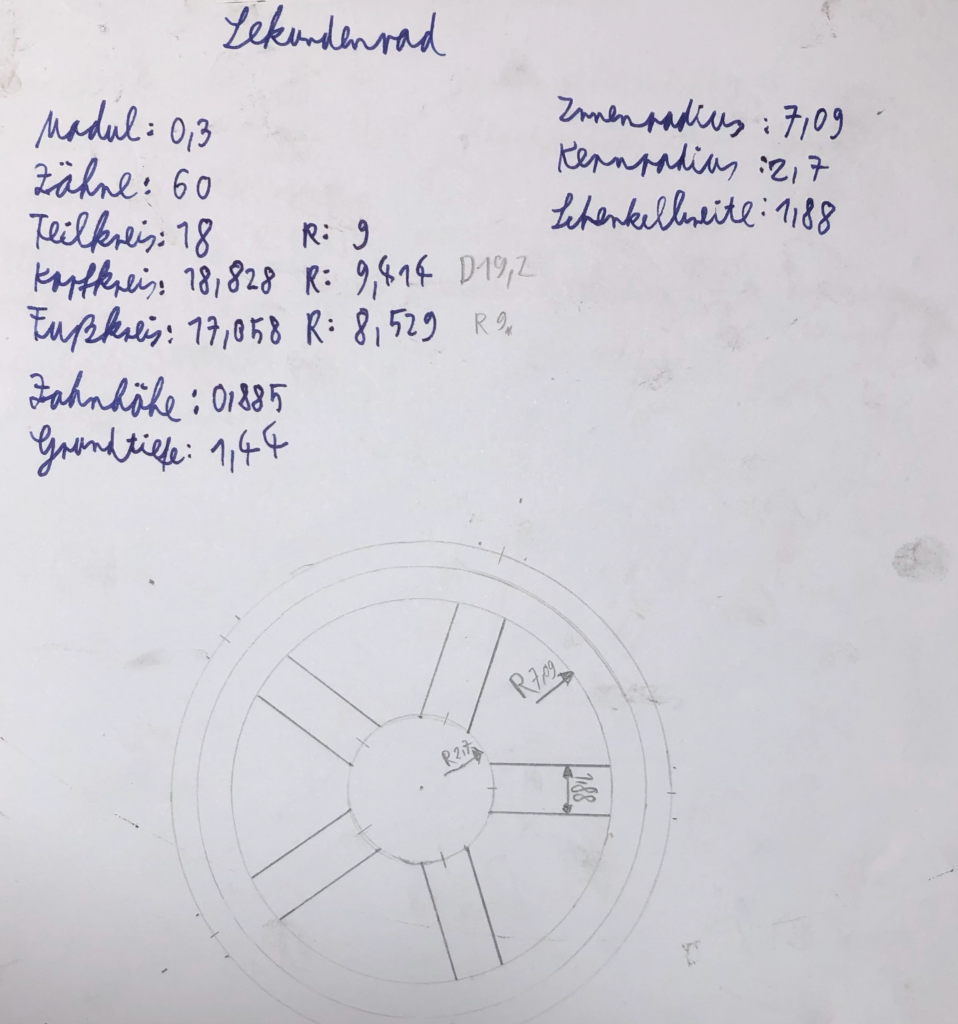 Sekundenrad
Modul: 0,3
Zähne: 60
Teilkreis: 18 R: 9
Kopfkreis: 18,828 R: 9,414 D19,2
Fußkreis: 17,058 R: 8,529 R 9.
Zahnhöhe: 0,885
Grundtiefe: 1,44
Innenradius: 7,09
Kernradius: 2,7
Schenkelbreite: 1,88
R7,09
R2,7
1,88